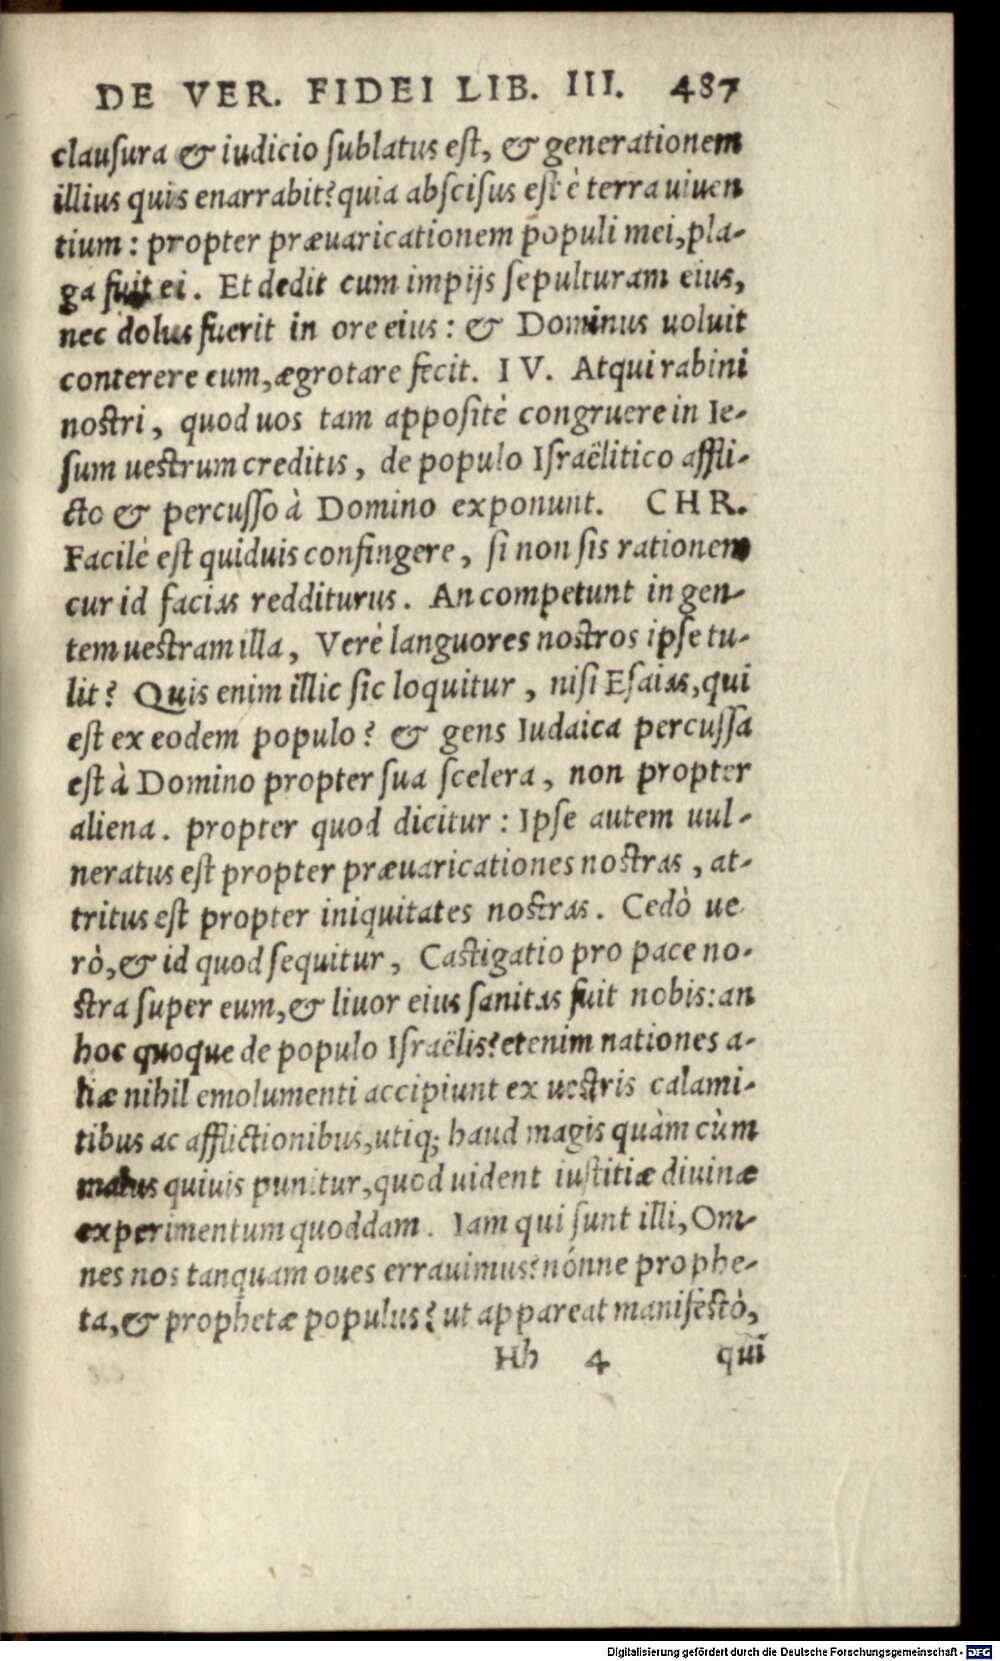 DE VER. FIDEI LIB. III. 487
clauſura & iudicio ſublatus eſt, & generationem
illius quis enarrabit? quia abſciſus eſt è terra uiuen
tium: propter præuaricationem populi mei, pla-
ga fuit ei. Et dedit cum impijs ſepulturam eius,
nec dolus fuerit in ore eius: & Dominus uoluit
conterere eum, ægrotare fecit. IV. Atqui rabini
noſtri, quod uos tam appoſitè congruere in Ie-
ſum ueſtrum creditis, de populo Iſraëlitico affli-
cto & percuſſo à Domino exponunt. CHR.
Facilè eſt quiduis confingere, ſi non ſis rationem
cur id facias redditurus. An competunt in gen-
tem ueſtram illa, Verè languores noſtros ipſe tu-
lit? Quis enim illic ſic loquitur, niſi Eſaias, qui
eſt ex eodem populo? & gens Iudaica percuſſa
eſt à Domino propter ſua ſcelera, non propter
aliena. propter quod dicitur: Ipſe autem uul-
neratus eſt propter præuaricationes noſtras, at-
tritus eſt propter iniquitates noſtras. Cedò ue
rò, & id quod ſequitur, Caſtigatio pro pace no-
ſtra ſuper eum, & liuor eius ſanitas fuit nobis: an
hoc quoque de populo Iſraëlis? etenim nationes a-
liæ nihil emolumenti accipiunt ex ueſtris calami-
tibus ac afflictionibus, utiq; haud magis quàm cùm
malus quiuis punitur, quod uident iuſtitiæ diuinæ
experimentum quoddam. Iam qui ſunt illi, Om-
nes nos tanquam oues errauimus? nónne prophe-
ta, & prophetæ populus? ut appareat manifeſtò,
Hh 4 qui
Digitalisierung gefördert durch die Deutsche Forschungsgemeinschaft - DFG